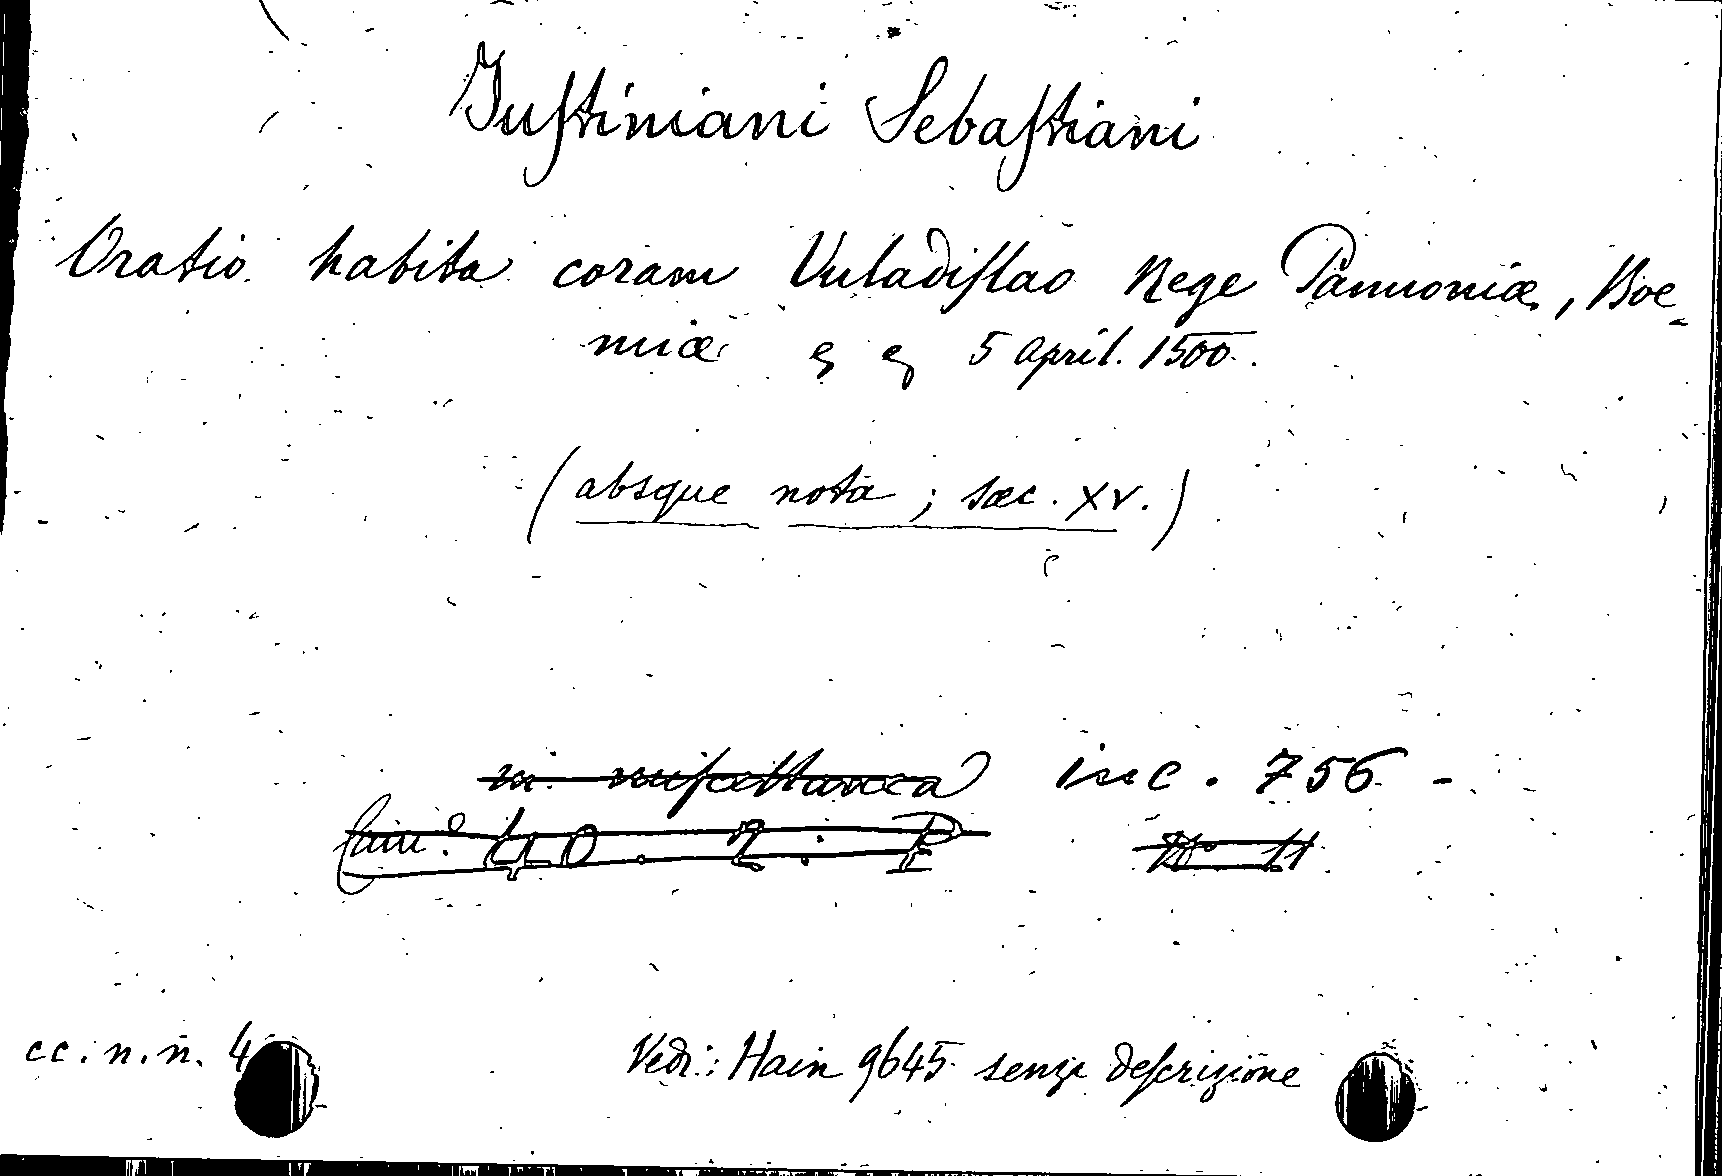 Iuſtiniani Sebaſtiani
Oratio habita coram Vuladiſlao Rege Pannoniæ, Boe-
miæ & & 5 April. 1500.
(absque nota ; sæc. XV.)
in miſcellanea inc. 756 -
40 . 2 : P N° 11
cc. n. n. 4
Vedi: Hain 9645 senza deſcrizione